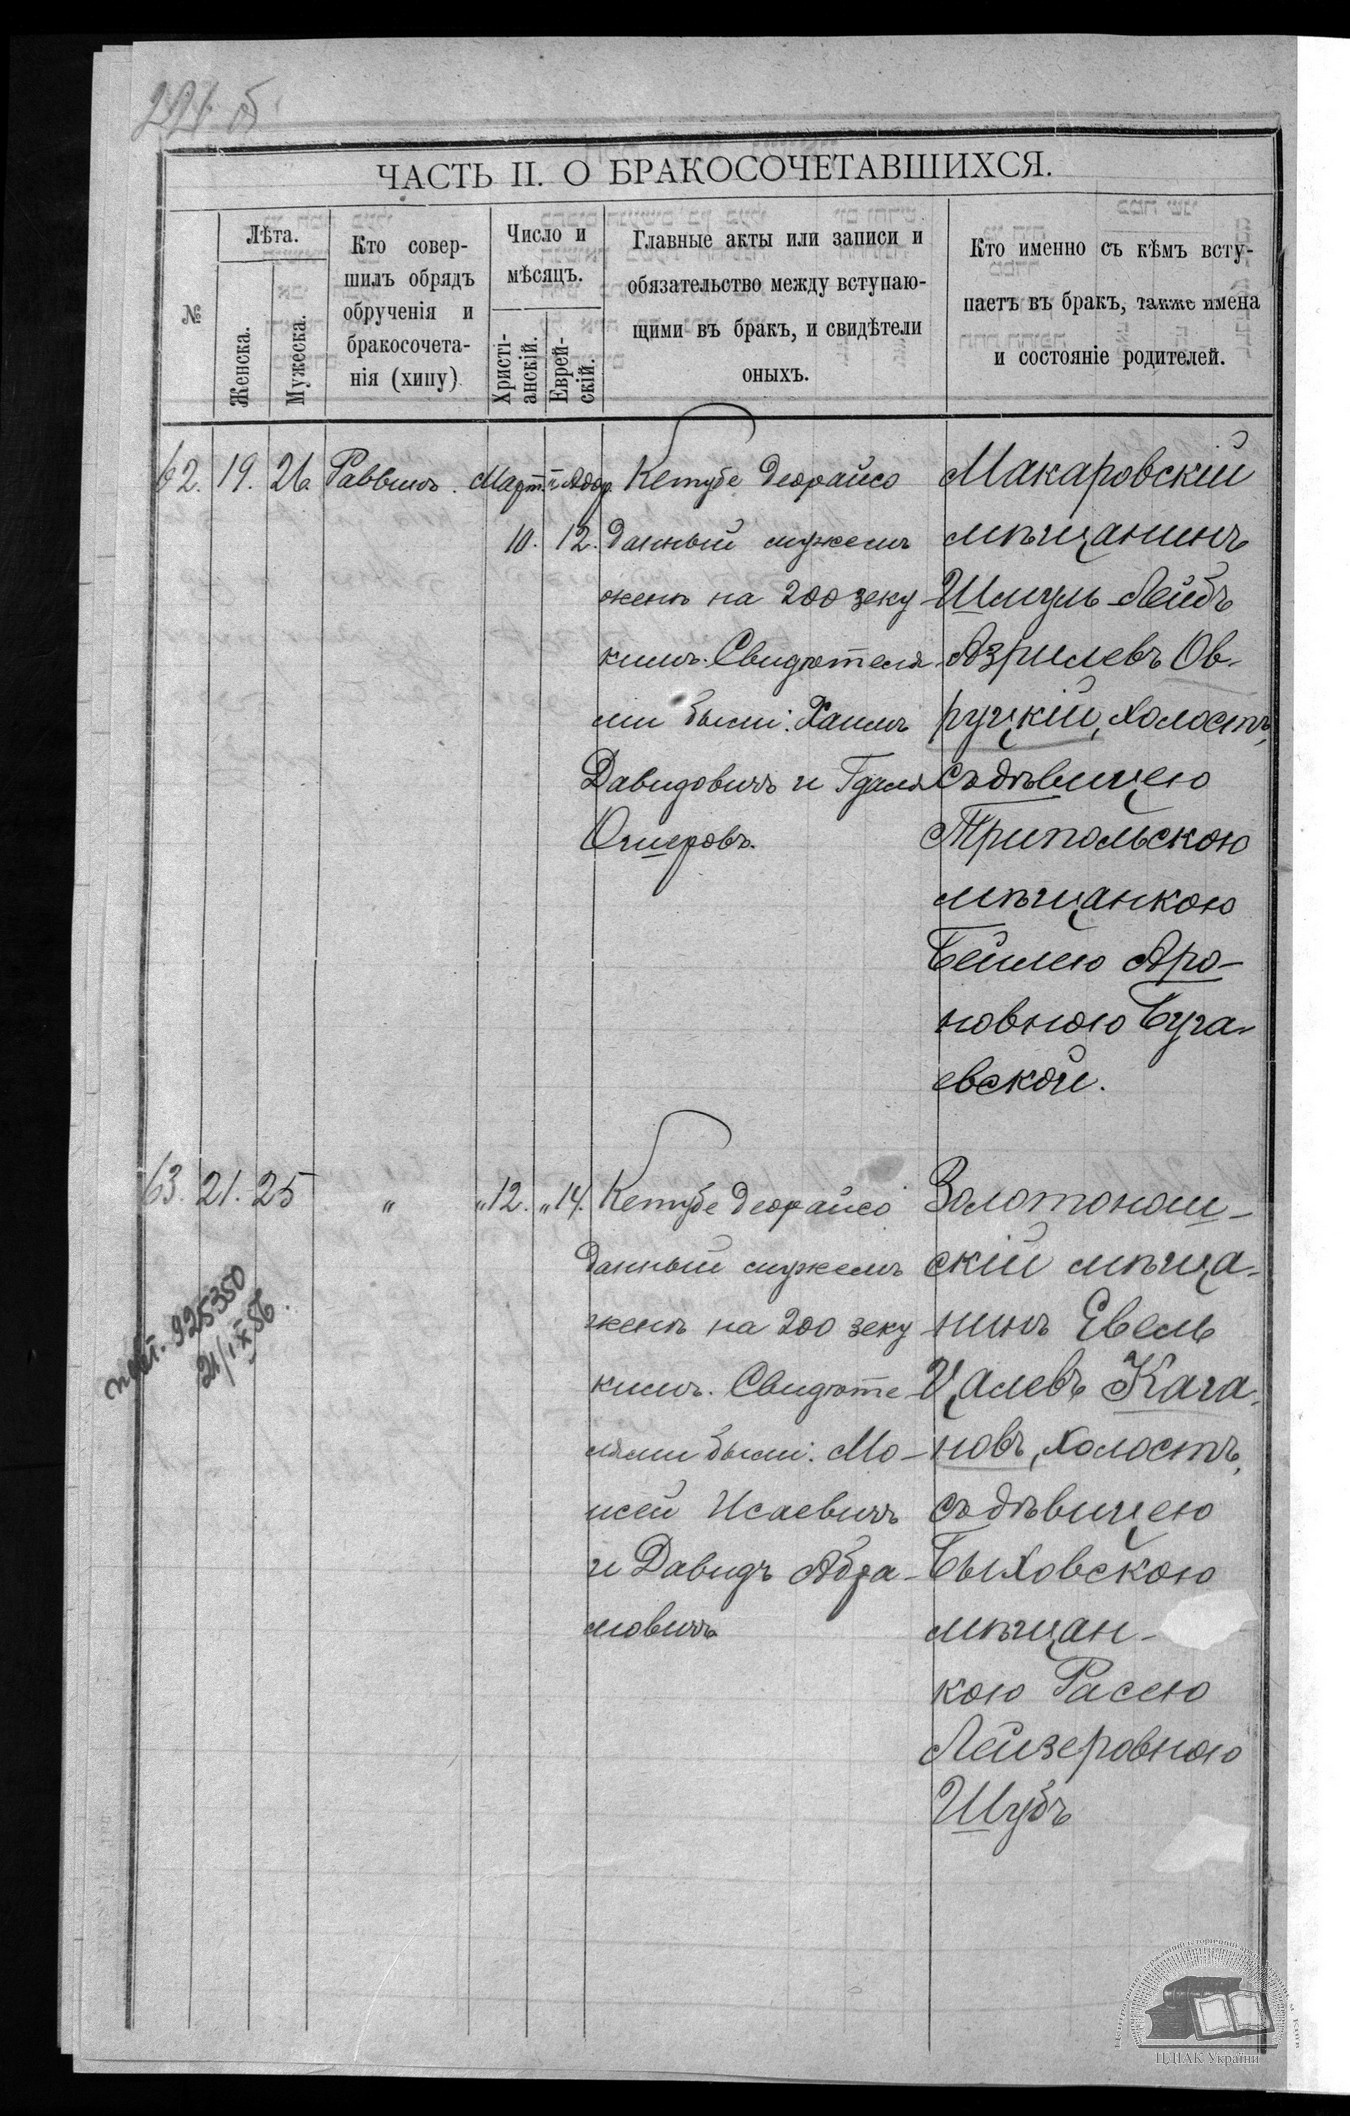 221 об
ЧАСТЬ II. О БРАКОСОЧЕТАВШИХСЯ.
№
Лѣта.
Женска.
Мужеска.
Кто совер-
шилъ обрядъ
обрученія и
бракосочета-
нія (хипу)
Число и
мѣсяцъ.
Христі-
анскій.
Еврей-
скій.
Главные акты или записи и
обязательство между вступаю-
щими въ бракъ, и свидѣтели
оныхъ.
Кто именно съ кѣмъ всту-
паетъ въ бракъ, также имена
и состояніе родителей.
62. 19. 26. Раввинъ. Март. Адар.
10. 12.
Кетубе деорайсо
данный мужемъ
женѣ на 200 зеку
кимъ. Свидѣтеля
ми были: Хаимъ
Давидовичъ и Гдаля
Ошеровъ.
Макаровскій
мѣщанинъ
Шмуль-Лейбъ
Азрилевъ Ов-
руцкій, холостъ,
съ дѣвицею
Трипольскою
мѣщанкою
Бейлею Аро-
новною Буга-
евской.
63. 21. 25 „ „12. „14.
Кетубе деорайсо
данный мужемъ
женѣ на 200 зеку
кимъ. Свидѣте
лями были: Мо-
исей Исаевичъ
и Давидъ Абра-
мовичъ
Золотонош-
скій мѣща-
нинъ Евель
Цалевъ Кага-
новъ, холостъ,
съ дѣвицею
Быховскою
мѣщан-
кою Расею
Лейзеровною
Шубъ
925350
21/IX 56.
ЦДІАК України